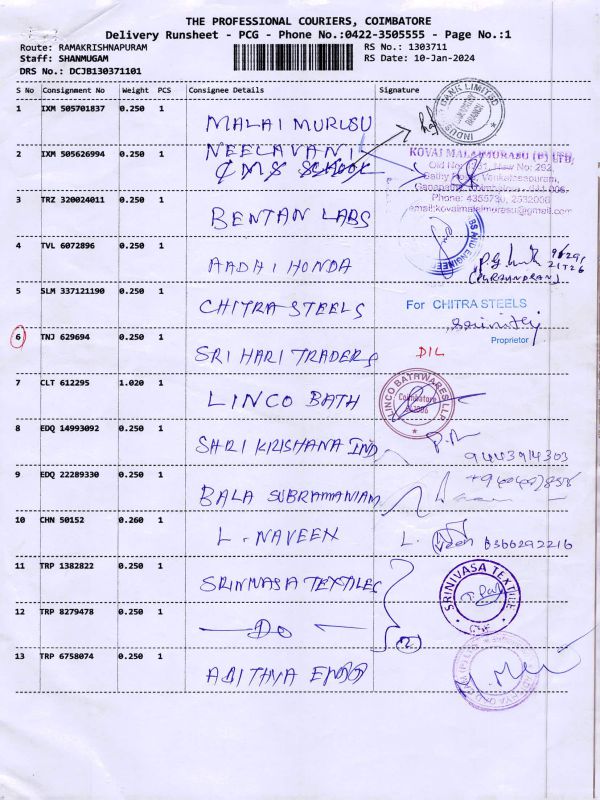 THE PROFESSIONAL COURIERS, COIMBATORE
Delivery Runsheet - PCG - Phone No.:0422-3505555 - Page No.:1
Route: RAMAKRISHNAPURAM
Staff: SHANMUGAM
DRS No.: DCJB130371101
RS No.: 1303711
RS Date: 10-Jan-2024
S No Consignment No Weight PCS Consignee Details Signature
1 IXM 505701837 0.250 1 MALAI MURUSU
INDUS BANK LIMITED
2 IXM 505626994 0.250 1 NEELAVANI
CMS SCHOOL
KOVAI MALAIMURASU (P) LTD,
Old No: New No: 292,
Sathy Road, Venkatesapuram,
Ganapathy, Coimbatore - 641 006.
Phone: 4355730, 2532000
email:kovaimalaimurasu@gmail.com
3 TRZ 320024011 0.250 1 BENTAN LABS
4 TVL 6072896 0.250 1 AADHI HONDA
5 SLM 337121190 0.250 1 CHITRA STEELS
For CHITRA STEELS
Proprietor
6 TNJ 629694 0.250 1 SRI HARI TRADERS DIL
7 CLT 612295 1.020 1 LINCO BATH
LINCO BATHWARES LLP
Coimbatore
8 EDQ 14993092 0.250 1 SHRI KRISHANA IND
9443914303
9 EDQ 22289330 0.250 1 BALA SUBRAMANIAM
10 CHN 50152 0.260 1 L. NAVEEN L. Naveen 6366292216
11 TRP 1382822 0.250 1 SRINIVASA TEXTILES
SRINIVASA TEXTILE
CBE
12 TRP 8279478 0.250 1 DO 2
13 TRP 6758074 0.250 1 ADITHYA ENGG